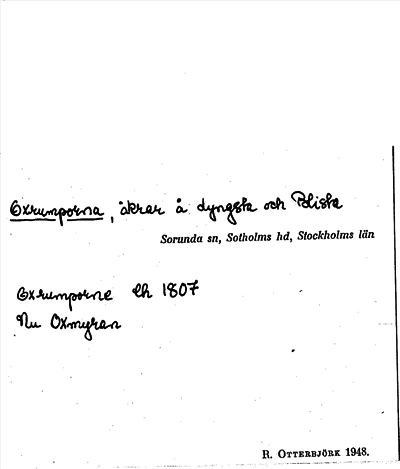 Oxrumporna, åkrar å dyngsta och Bliska
Sorunda sn, Sotholms hd, Stockholms län
Oxrumporne lh 1807
Nu Oxmyran
R. OTTERBJÖRK 1948.